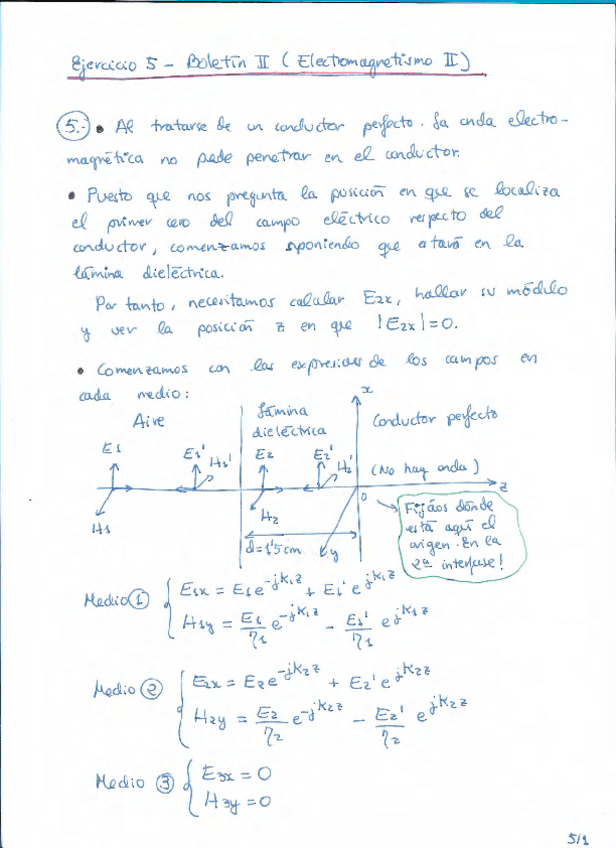 Ejercicio 5 - Boletín II ( Electromagnetismo II )
5.- • Al tratarse de un conductor perfecto. La onda electro-
magnética no puede penetrar en el conductor.
• Puesto que nos pregunta la posición en que se localiza
el primer cero del campo eléctrico respecto del
conductor, comenzamos suponiendo que estará en la
lámina dieléctrica.
Por tanto, necesitamos calcular E2x, hallar su módulo
y ver la posición z en que |E2x|=0.
• Comenzamos con las expresiones de los campos en
cada medio:
x
Aire
Lámina
dieléctrica
Conductor perfecto
E1
E1'
H1'
E2
E2'
H2'
(No hay onda)
z
0
H1
H2
y
d=1'5cm
Fijáos dónde
está aquí el
origen. En la
2ª interfase!
Medio ① { E1x = E1 e^{-jk1z} + E1' e^{jk1z}
H1y = E1/η1 e^{-jk1z} - E1'/η1 e^{jk1z}
Medio ② { E2x = E2 e^{-jk2z} + E2' e^{jk2z}
H2y = E2/η2 e^{-jk2z} - E2'/η2 e^{jk2z}
Medio ③ { E3x = 0
H3y = 0
5/1